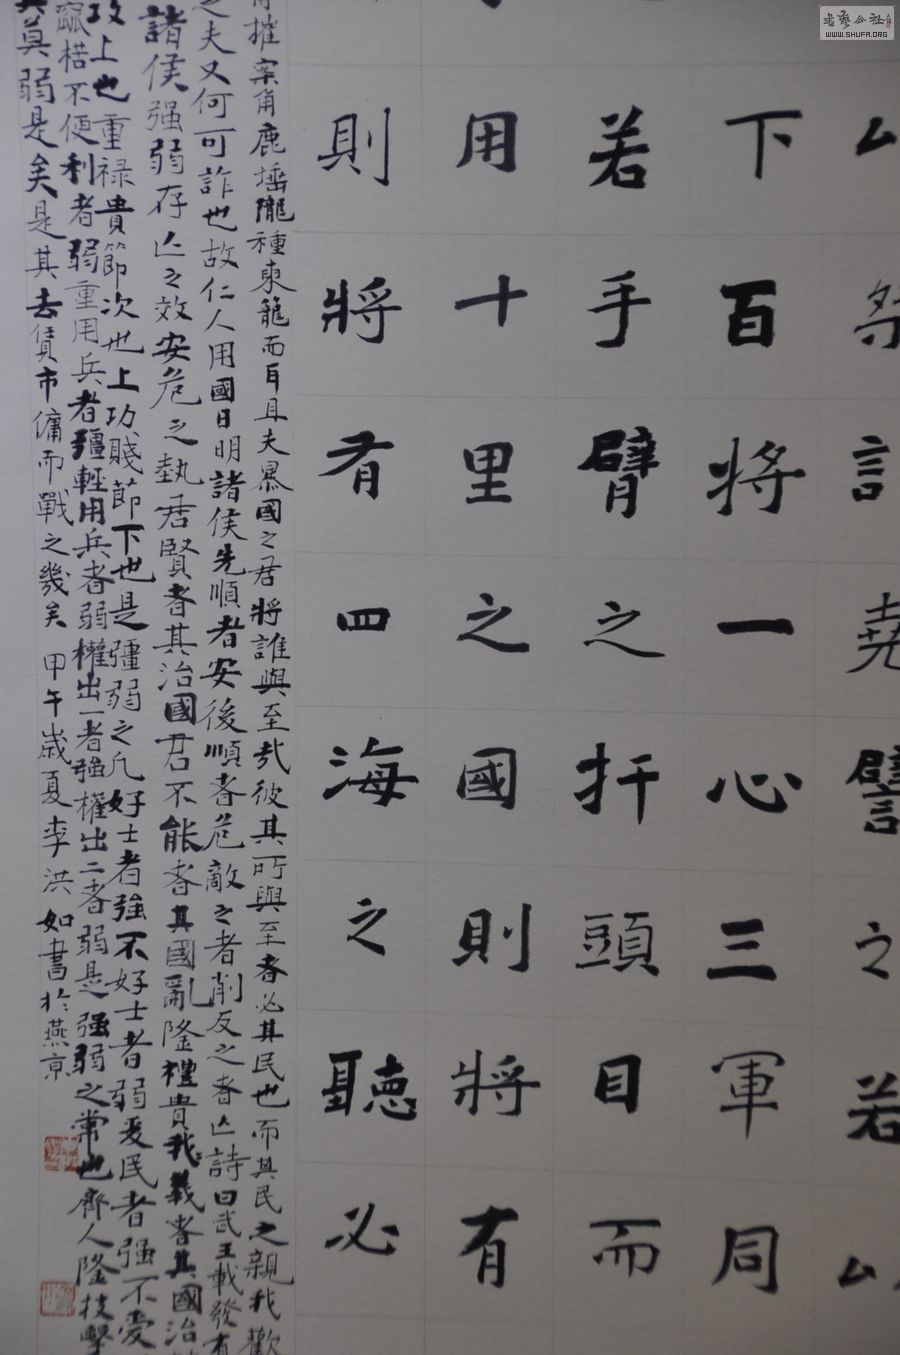 詐堯譬之若
下百將一心三軍同
若手臂之扞頭目而
用十里之國則將有
則將有四海之聽必
摧案角鹿埵隴種東籠而耳且夫㬥國之君將誰與至哉彼其所與至者必其民也而其民之親我歡
之夫又何可詐也故仁人用國日明諸侯先順者安後順者危敵之者削反之者亡詩曰武王載發有
諸侯强弱存亡之效安危之埶君賢者其治國君不能者其國亂隆禮貴義者其國治
攻上也重禄貴節次也上功賤節下也是彊弱之凡好士者强不好士者弱愛民者强不愛
窳楛不便利者弱重用兵者彊輕用兵者弱權出一者强權出二者弱是强弱之常也齊人隆技擊
弱是矣是其去賃市傭而戰之幾矣 甲午歲夏李洪如書於燕京
書藝公社
WWW.SHUFA.ORG